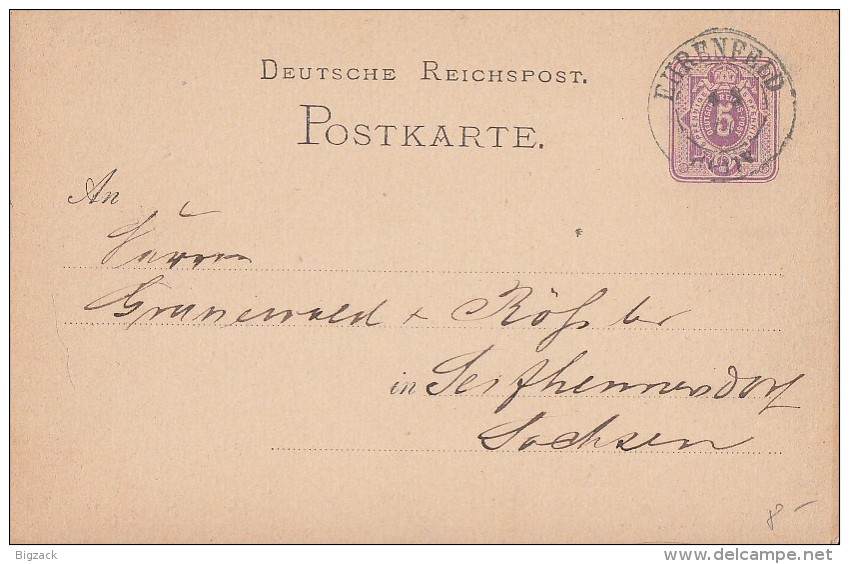 DEUTSCHE REICHSPOST.
POSTKARTE.
EHRENFELD
5
An
Herren
Grunewald + Rößler
in Seifhennersdorf
Sachsen
8-
Bigzack
www.delcampe.net